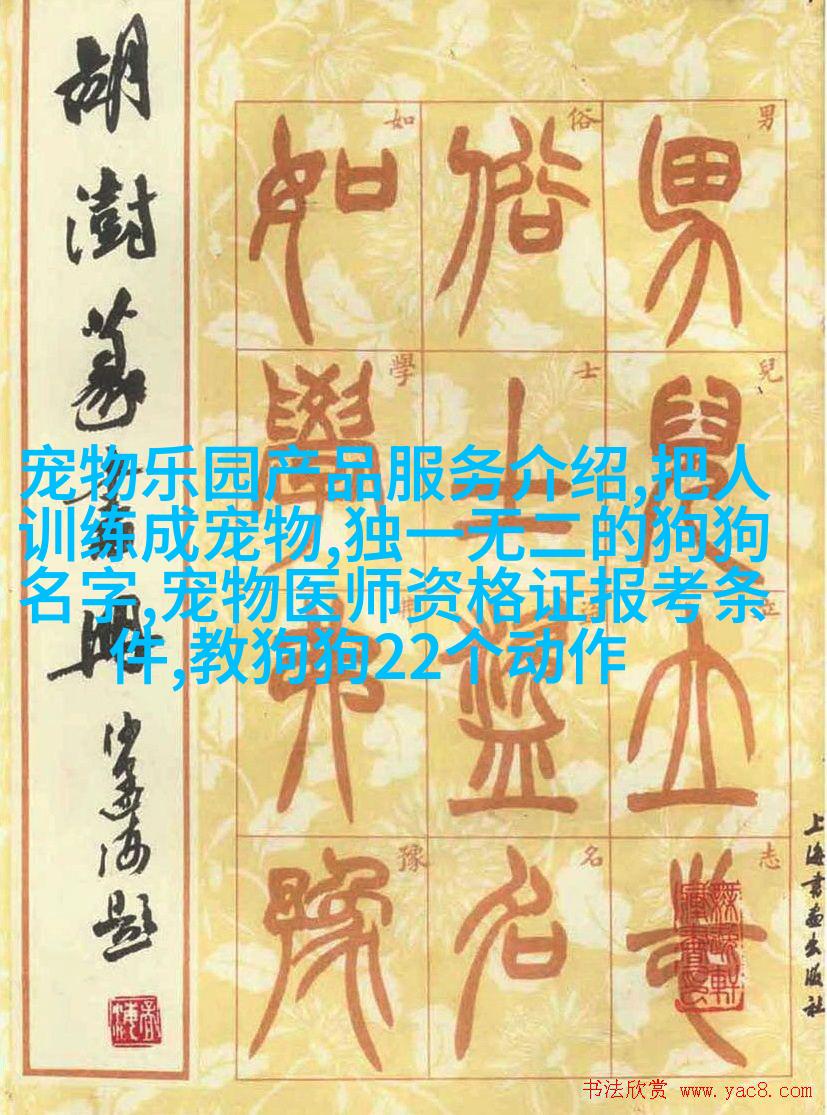 胡澍篆書冊
沙孟海題
宠物乐园产品服务介绍,把人
训练成宠物,独一无二的狗狗
名字,宠物医师资格证报考条
件,教狗狗22个动作
男兒立志
俗士盜名
如學弗豫
上海書畫出版社
书法欣赏 www.yac8.com